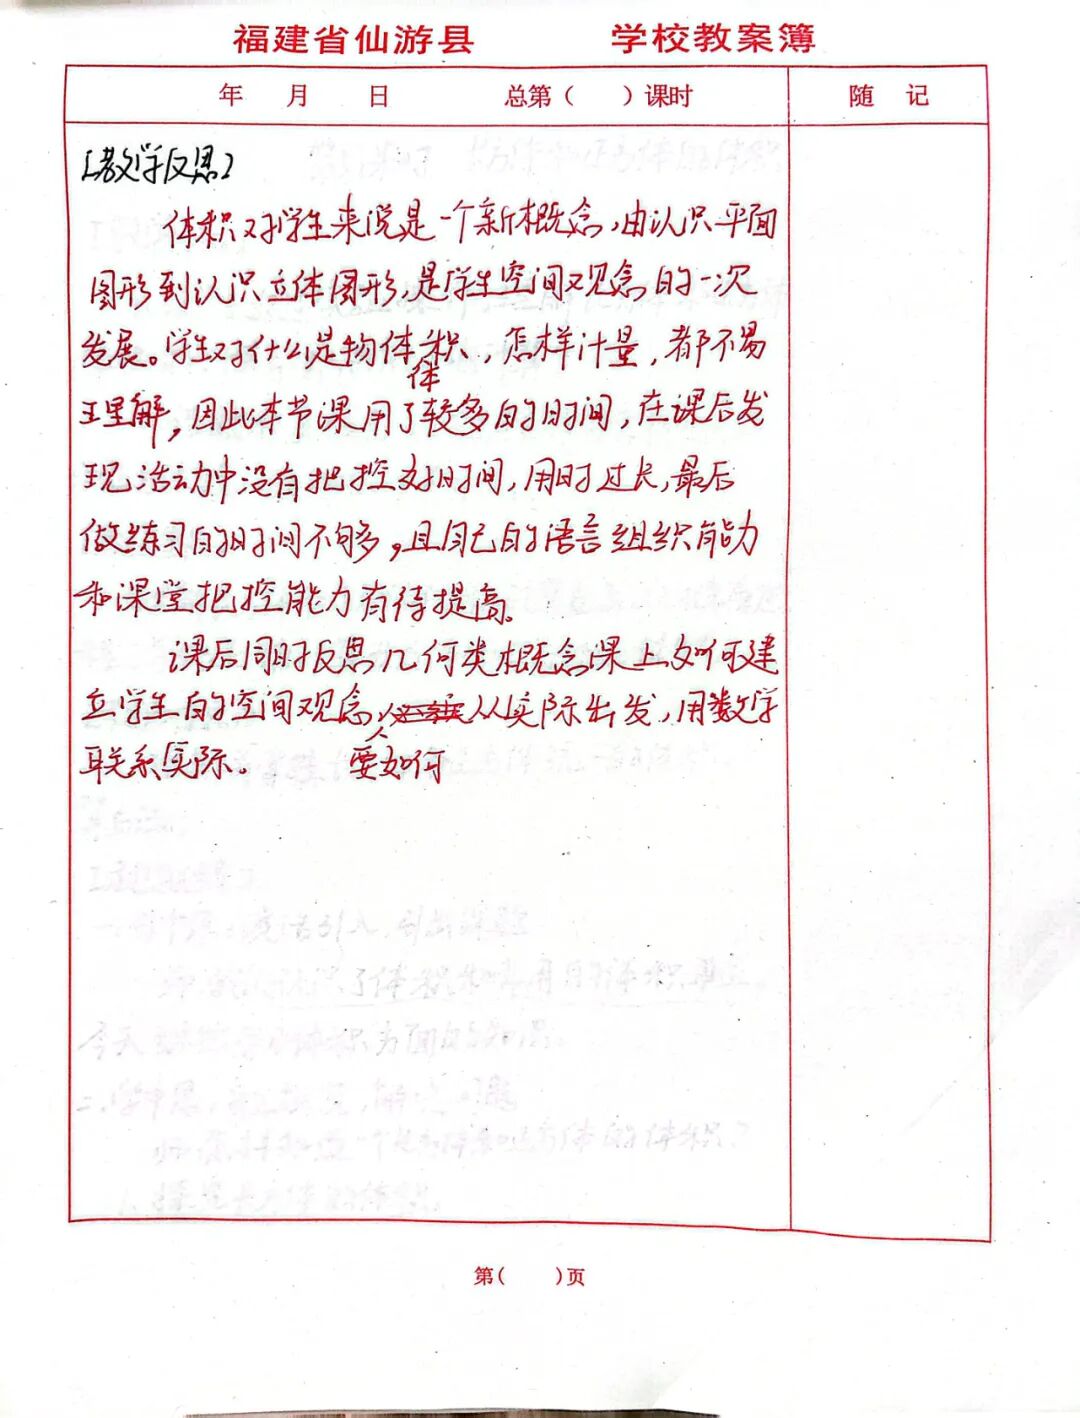 福建省仙游县 学校教案簿
年 月 日 总第（ ）课时 随 记
[教学反思]
体积对学生来说是一个新概念,由认识平面
图形到认识立体图形,是学生空间观念的一次
发展。学生对什么是物体体积,怎样计量,都不易
理解,因此本节课用了较多的时间,在课后发
现活动中没有把控好时间,用时过长,最后
做练习的时间不够多,且自己的语言组织能力
和课堂把控能力有待提高。
课后同时反思几何类概念课上如何建
立学生的空间观念,要如何从实际出发,用数学
联系实际。
第( )页